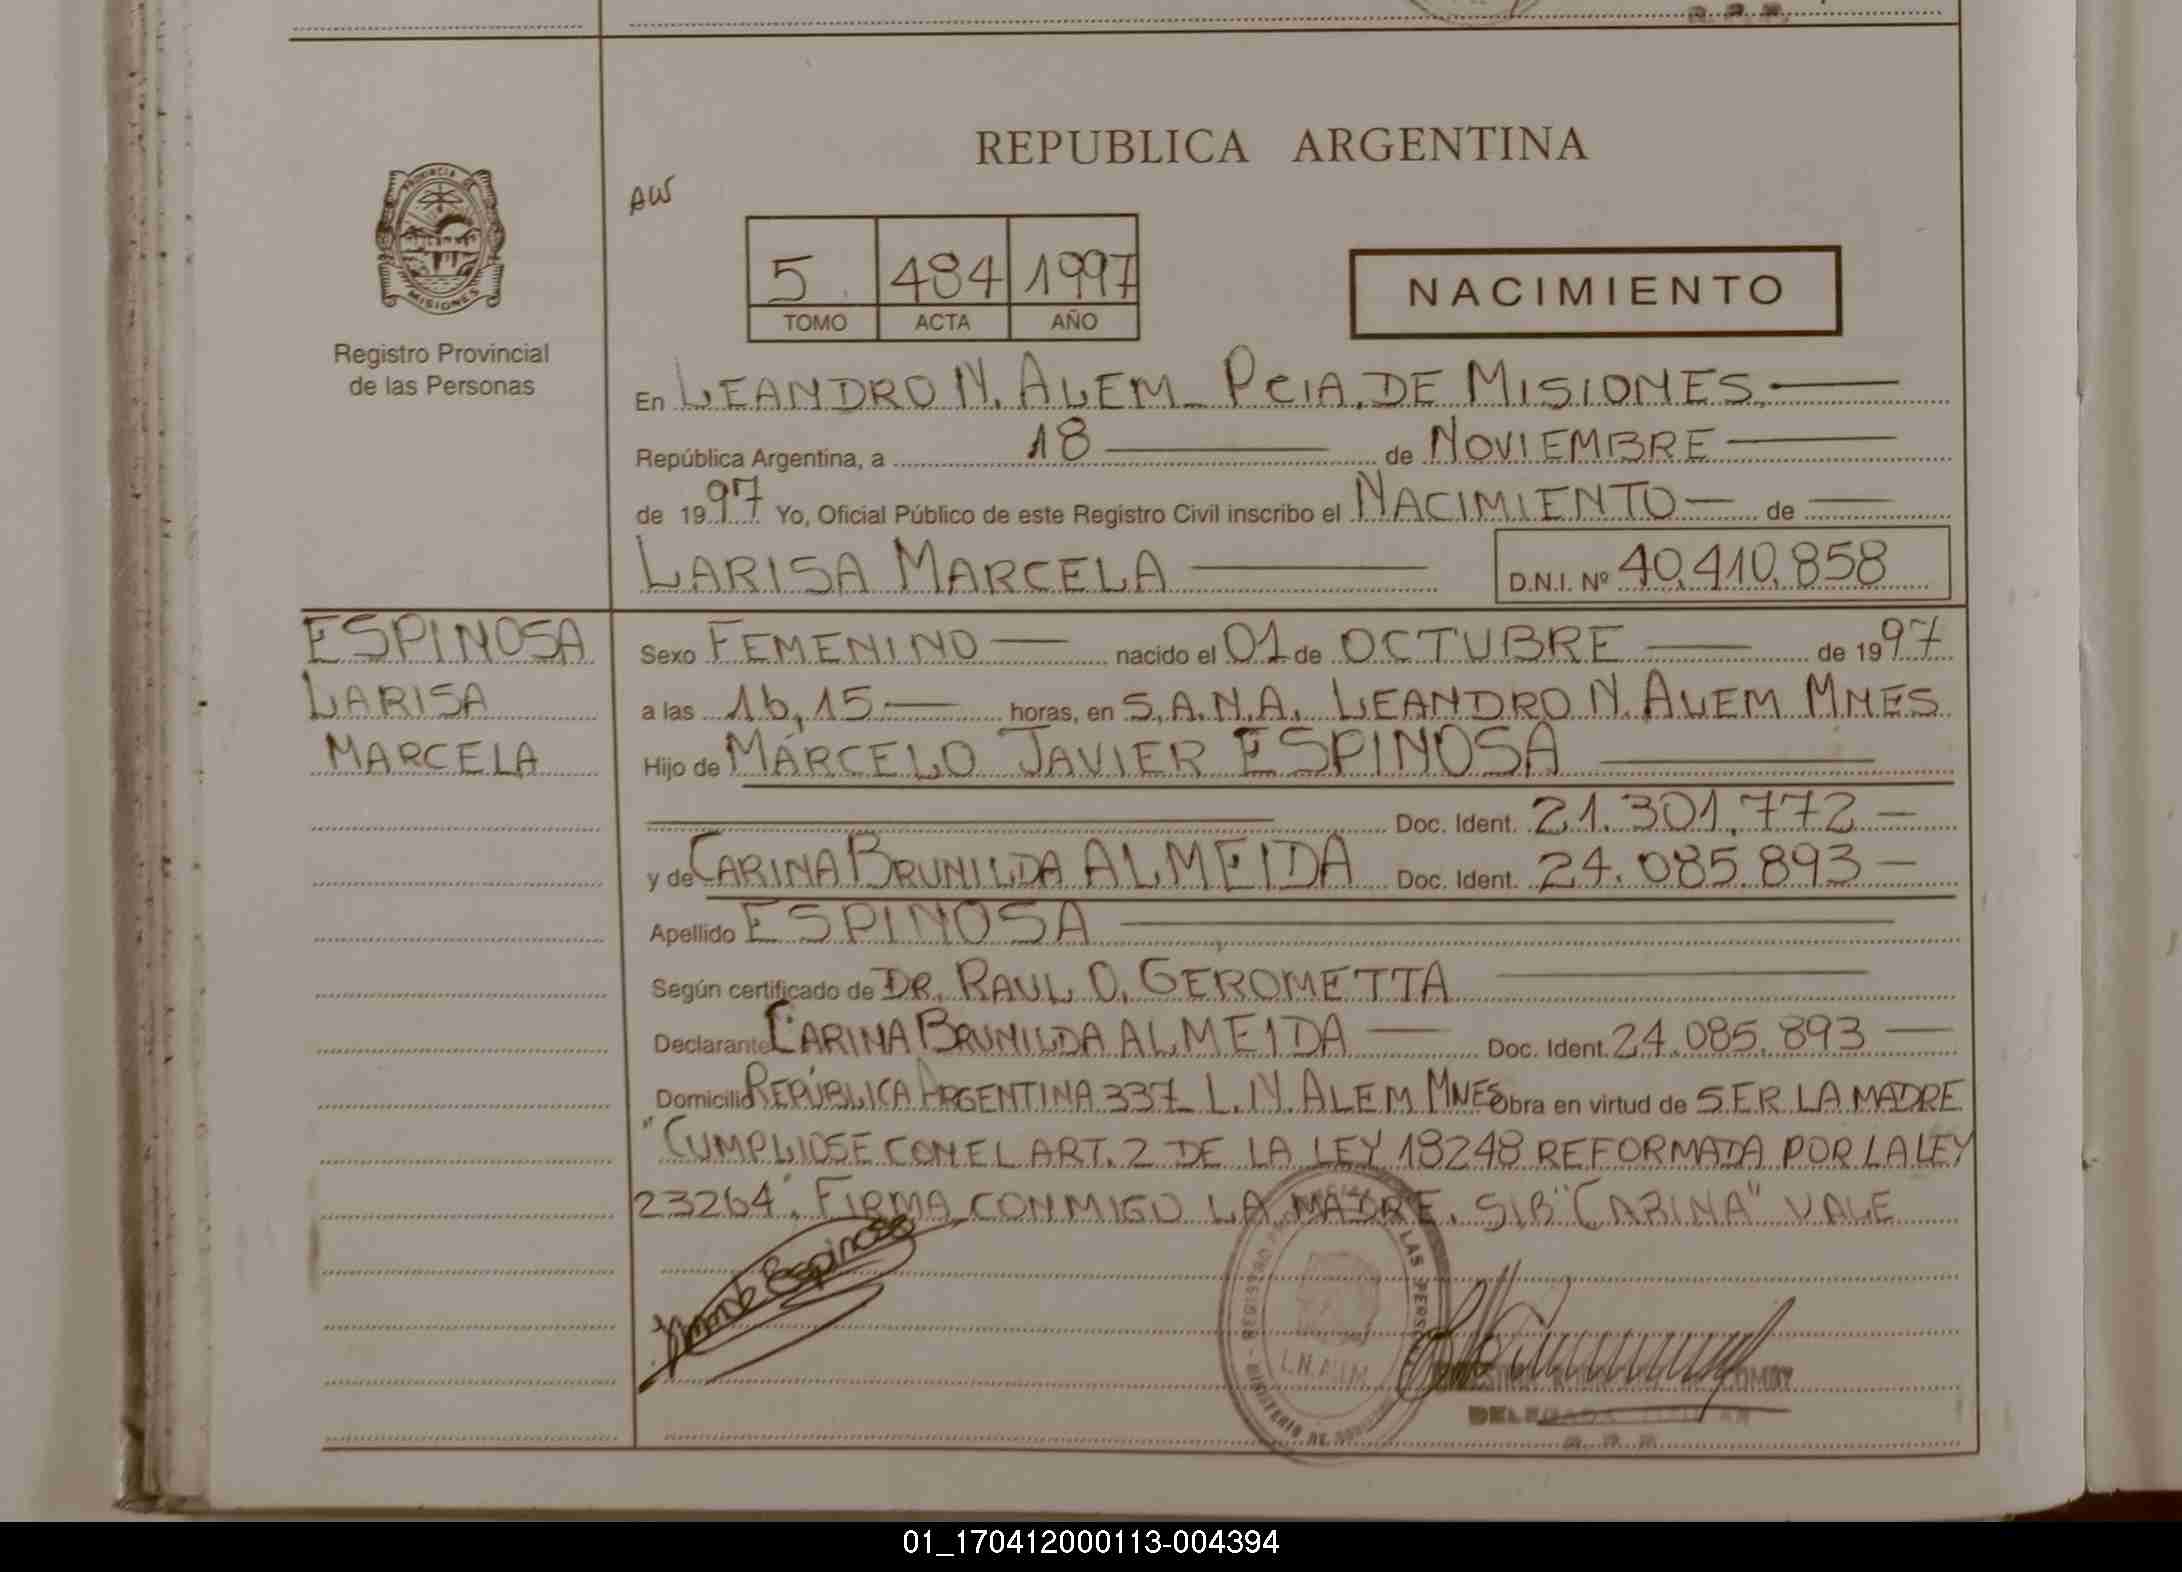 REPUBLICA ARGENTINA
PROVINCIA DE
MISIONES
Registro Provincial
de las Personas
AW
5 484 1997
TOMO ACTA AÑO
NACIMIENTO
En LEANDRO N. ALEM - PCIA. DE MISIONES.
República Argentina, a 18 de NOVIEMBRE
de 1997 Yo, Oficial Público de este Registro Civil inscribo el NACIMIENTO de
LARISA MARCELA D.N.I. Nº 40.410.858
ESPINOSA
LARISA
MARCELA
Sexo FEMENINO nacido el 01 de OCTUBRE de 1997
a las 16,15 horas, en S.A.N.A. LEANDRO N. ALEM MNES
Hijo de MARCELO JAVIER ESPINOSA
Doc. Ident. 21.301.772
y de CARINA BRUNILDA ALMEIDA Doc. Ident. 24.085.893
Apellido ESPINOSA
Según certificado de DR. RAUL O. GEROMETTA
Declarante CARINA BRUNILDA ALMEIDA Doc. Ident. 24.085.893
Domicilio REPÚBLICA ARGENTINA 337 L.N. ALEM MNES Obra en virtud de SER LA MADRE
"CUMPLIOSE CON EL ART. 2 DE LA LEY 18248 REFORMADA POR LA LEY
23264". FIRMA CONMIGO LA MADRE. S/B "CARINA" VALE
Espinosa
REGISTRO LAS PERSO
L.N. ALEM
MINISTERIO DE GOBIERNO
DELEGADA
01_170412000113-004394